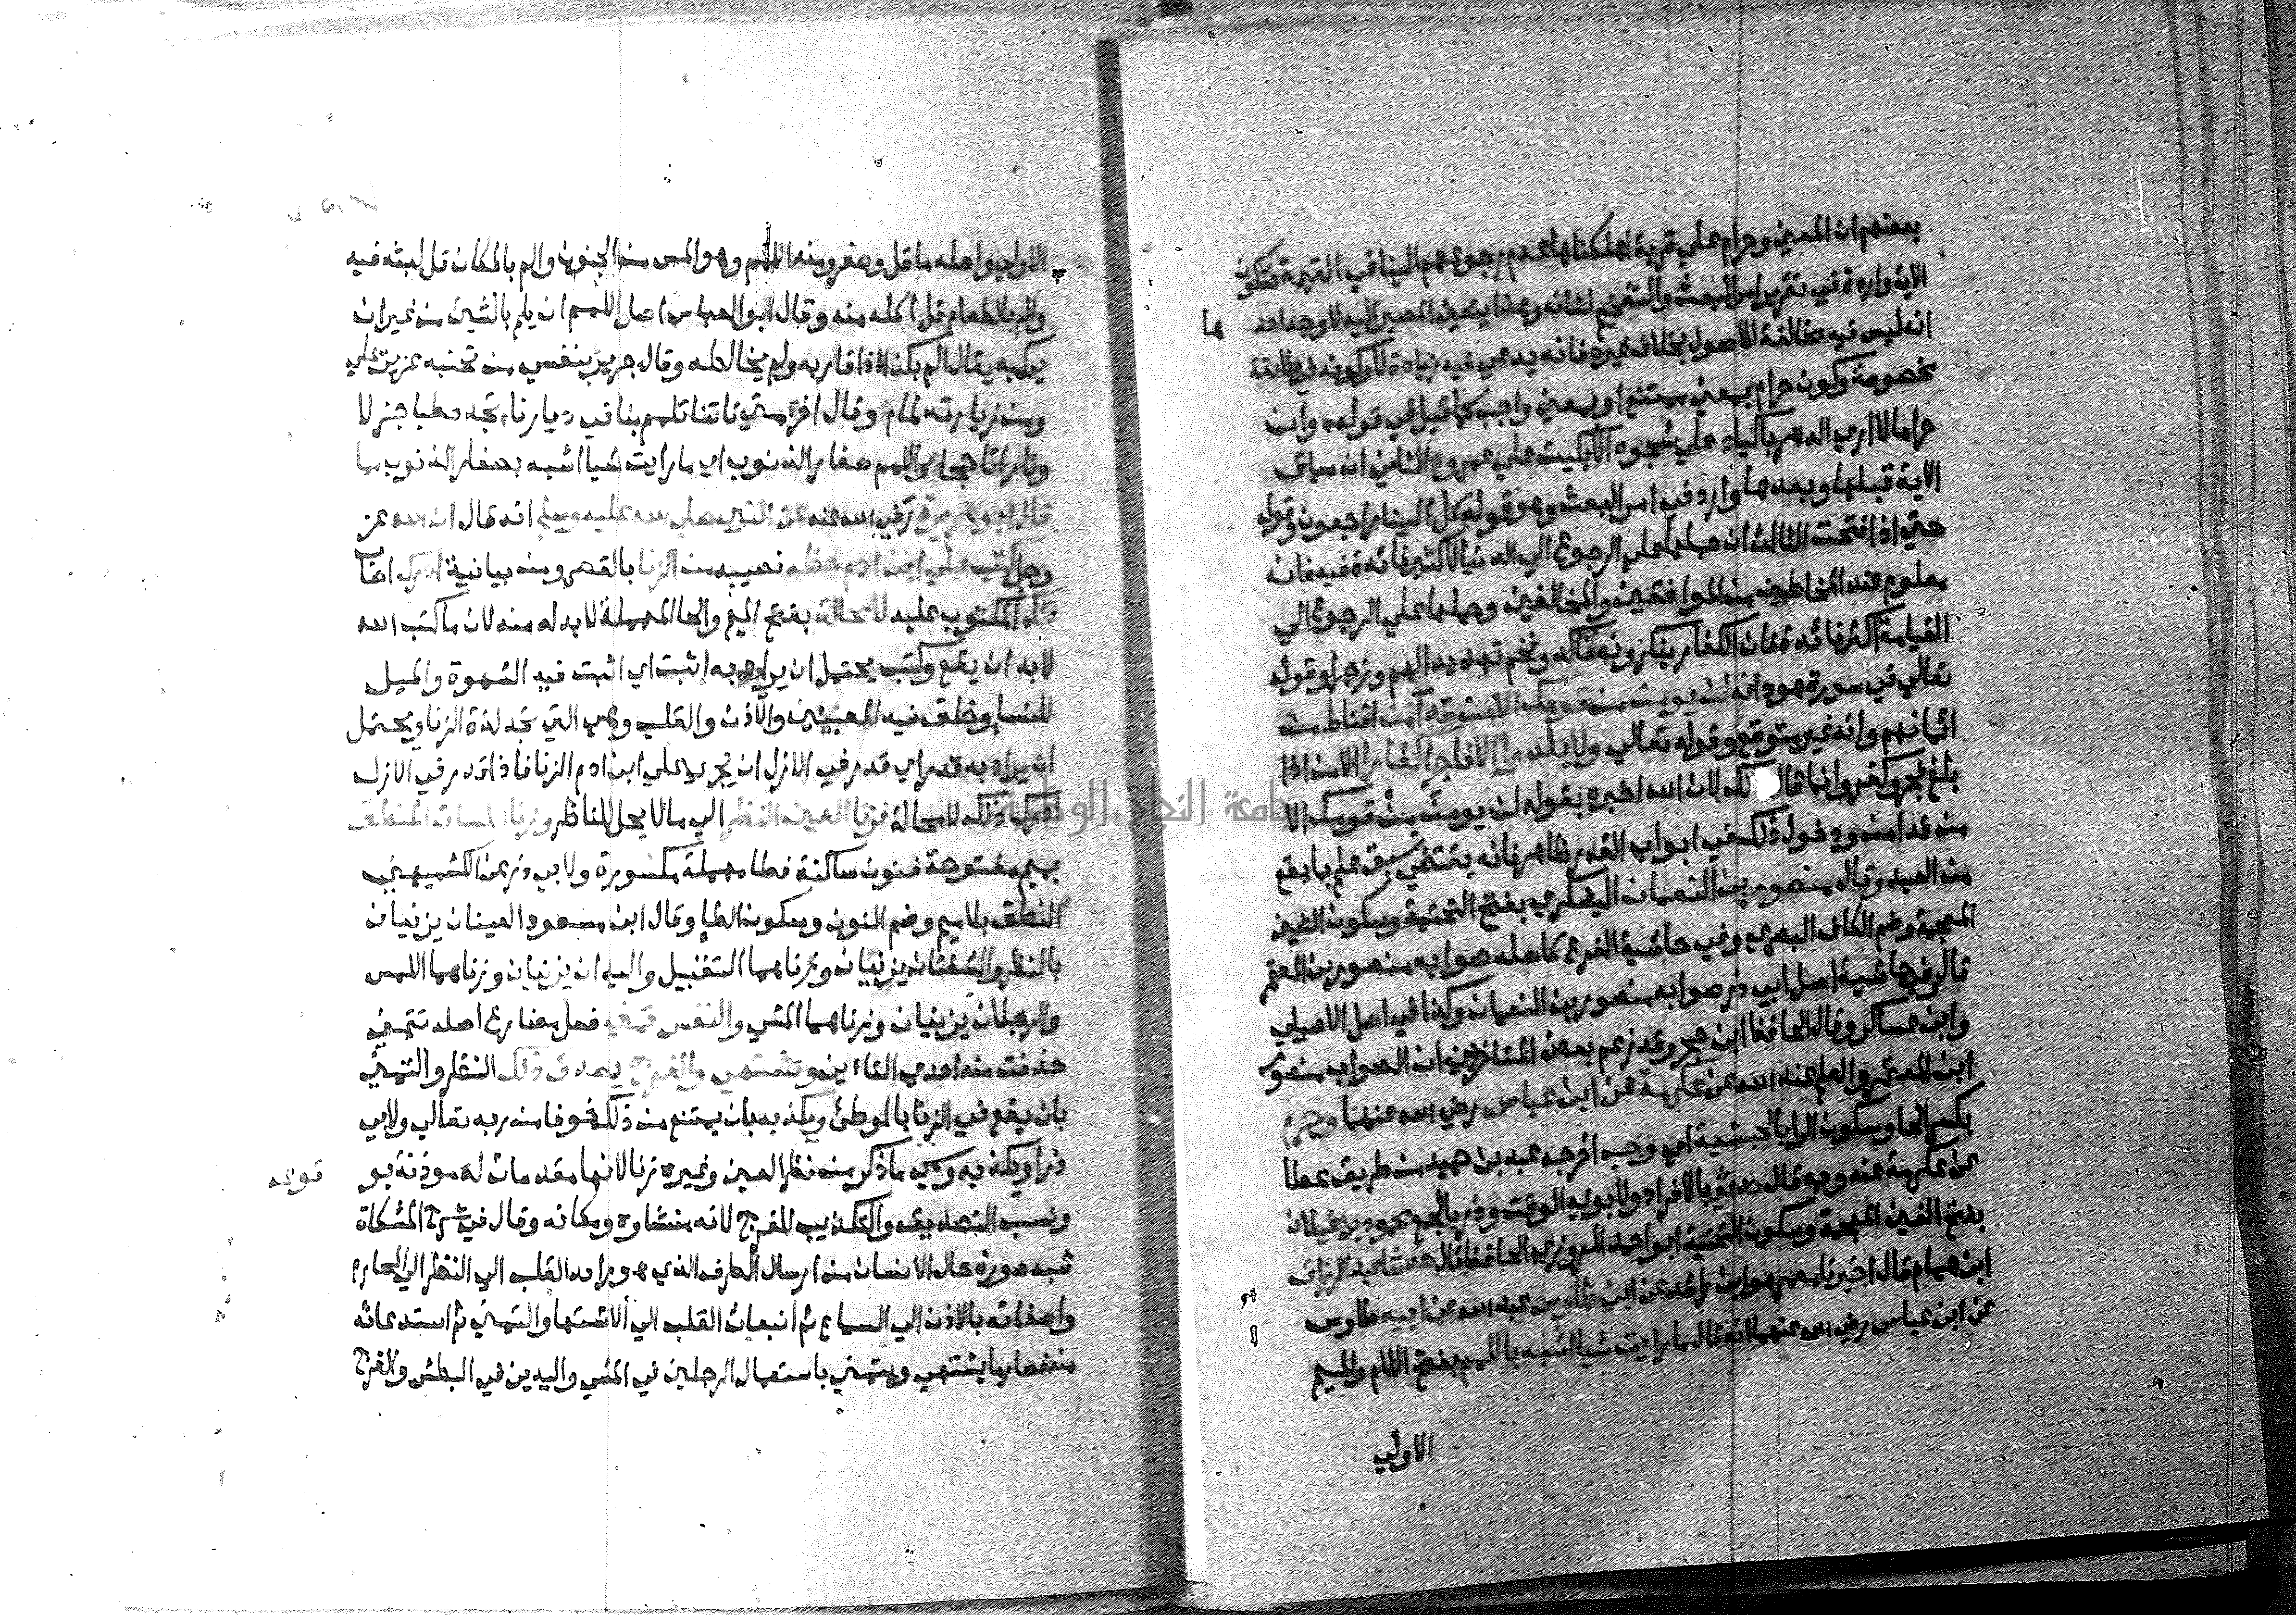 بعضهم ان المعني وحرام علي قرية اهلكناها عدم رجوعهم الينا في القيمة فتكون
الاية واردة في تقرير امر البعث والتفخيم لشانه وهذا يتعين المصير اليه لاوجه احدها
انه ليس فيه مخالفة للاصول بخلاف غيره فانه يدعي فيه زيادة لا وكونه في طائفة
مخصوصة وكون حرام بمعني ممتنع او بمعني واجب كما قيل في قوله وان
حراما لا اري الدهر باكيا علي شجوه الا بكيت علي عمرو الثاني ان سياق
الاية قبلها وبعدها وارد في امر البعث وهو قوله كل الينا راجعون وقوله
حتي اذا فتحت الثالث ان حملها علي الرجوع الي الدنيا لا كثير فائدة فيه فانه
معلوم عند المخاطبين من الموافقين والمخالفين وحملها علي الرجوع الي
القيامة اكثر فائدة فان الكفار ينكرونه فاكد وفخم تهديدا لهم وزجرا وقوله
تعالي في سورة هود انه لن يومن من قومك الا من قد آمن اقناط من
ائمانهم وانه غير متوقع وقوله تعالي ولا يلدوا الا فاجرا كفارا الا من اذا
بلغ فجر وكفر وانما قال ذلك لان الله اخبره بقوله لن يومن من قومك الا
من قد امن ودخول ذلك في ابواب القدر ظاهر فانه يقتضي سبق علم بما يقع
من العبد وقال منصور بن النعمان اليشكري بفتح التحتية وسكون الشين
المعجمة وضم الكاف البصري وفي حاشية الفرع كاصله صوابه منصور بن المعتمر
قال وفي حاشية اصل ابي ذر صوابه منصور بن النعمان وكذا في اصل الاصيلي
وابن عساكر وقال الحافظ ابن حجر وقد زعم بعض المتاخرين ان الصواب منصور
ابن المعتمر والعلم عند الله عن عكرمة عن ابن عباس رضي الله عنهما وحرم
بكسر الحا وسكون الرا بالحبشية اي وجب اخرجه عبد بن حميد من طريق عطا
عن عكرمة عنه وبه قال حدثني بالافراد ولابوي الوقت وذر بالجمع محمود بن غيلان
بفتح الغين المعجمة وسكون التحتية ابو احمد المروزي الحافظ قال حدثنا عبد الرزاق
ابن همام قال اخبرنا معمر هو ابن راشد عن ابن طاوس عبد الله عن ابيه طاوس
عن ابن عباس رضي الله عنهما انه قال ما رايت شيا اشبه باللمم بفتح اللام والميم
الاولي
الاولي واصله ما قل وصغر ومنه اللمم وهو المس من الجنون والم بالمكان قل لبثه فيه
والم بالطعام قل اكله منه وقال ابو العباس اصل اللمم ان يلم بالشيئ من غير ان
يركبه يقال الم بكذا اذا قاربه ولم يخالطه وقال جرير بنفسي من تجنبه عزيز علي
ومن زيارته لمام وقال اخر متي تاتنا تلمم بنا في ديارنا تجد حطبا جزلا
ونارا تاججا واللمم صغار الذنوب اي ما رايت شيا اشبه بصغار الذنوب مما
قال ابو هريرة رضي الله عنه عن النبي صلي الله عليه وسلم انه قال ان الله عز
وجل كتب علي ابن ادم حظه نصيبه من الزنا بالقصر ومن بيانية ادرك اصاب
ذلك المكتوب عليه لا محالة بفتح الميم والحا المهملة لا بد له منه لان ما كتب الله
لا بد ان يقع وكتب يحتمل ان يراد به اثبت اي اثبت فيه الشهوة والميل
للنساء وخلق فيه العينين والاذن والقلب وهي التي تجد لذة الزنا ويحتمل
ان يراد به قدر اي قدر في الازل ان يجري علي ابن ادم الزنا فاذا قدر في الازل
ادرك ذلك لا محالة فزنا العين النظر الي ما لا يحل للناظر وزنا اللسان المنطق
بميم مفتوحة فنون ساكنة فطا مهملة مكسورة ولابي ذر عن الكشميهني
النطق بلا ميم وضم النون وسكون الطا وقال ابن مسعود العينان يزنيان
بالنظر والشفتان يزنيان وزناهما التقبيل واليدان يزنيان وزناهما اللمس
والرجلان يزنيان وزناهما المشي والنفس تمني فعل مضارع اصله تتمني
حذفت منه احدي التاءين وتشتهي والفرج يصدق ذلك النظر والتمني
بان يقع في الزنا بالوطئ ويكذبه بان يمتنع من ذلك خوفا من ربه تعالي ولابي
ذر او يكذبه وسمي ما ذكر من نظر العين وغيره زنا لانها مقدمات له موذنة بوقوعه
ونسب التصديق والتكذيب للفرج لانه منشاوه ومكانه وقال في شرح المشكاة
شبه صورة حال الانسان من ارسال الطرف الذي هو رائد القلب الي النظر الي المحارم
واصغائه بالاذن الي السماع ثم انبعاث القلب الي الاشتها والتمني ثم استدعائه
منه قصار ما يشتهي ويتمني باستعمال الرجلين في المشي واليدين في البطش والفرج
جامعة النجاح الوطنية